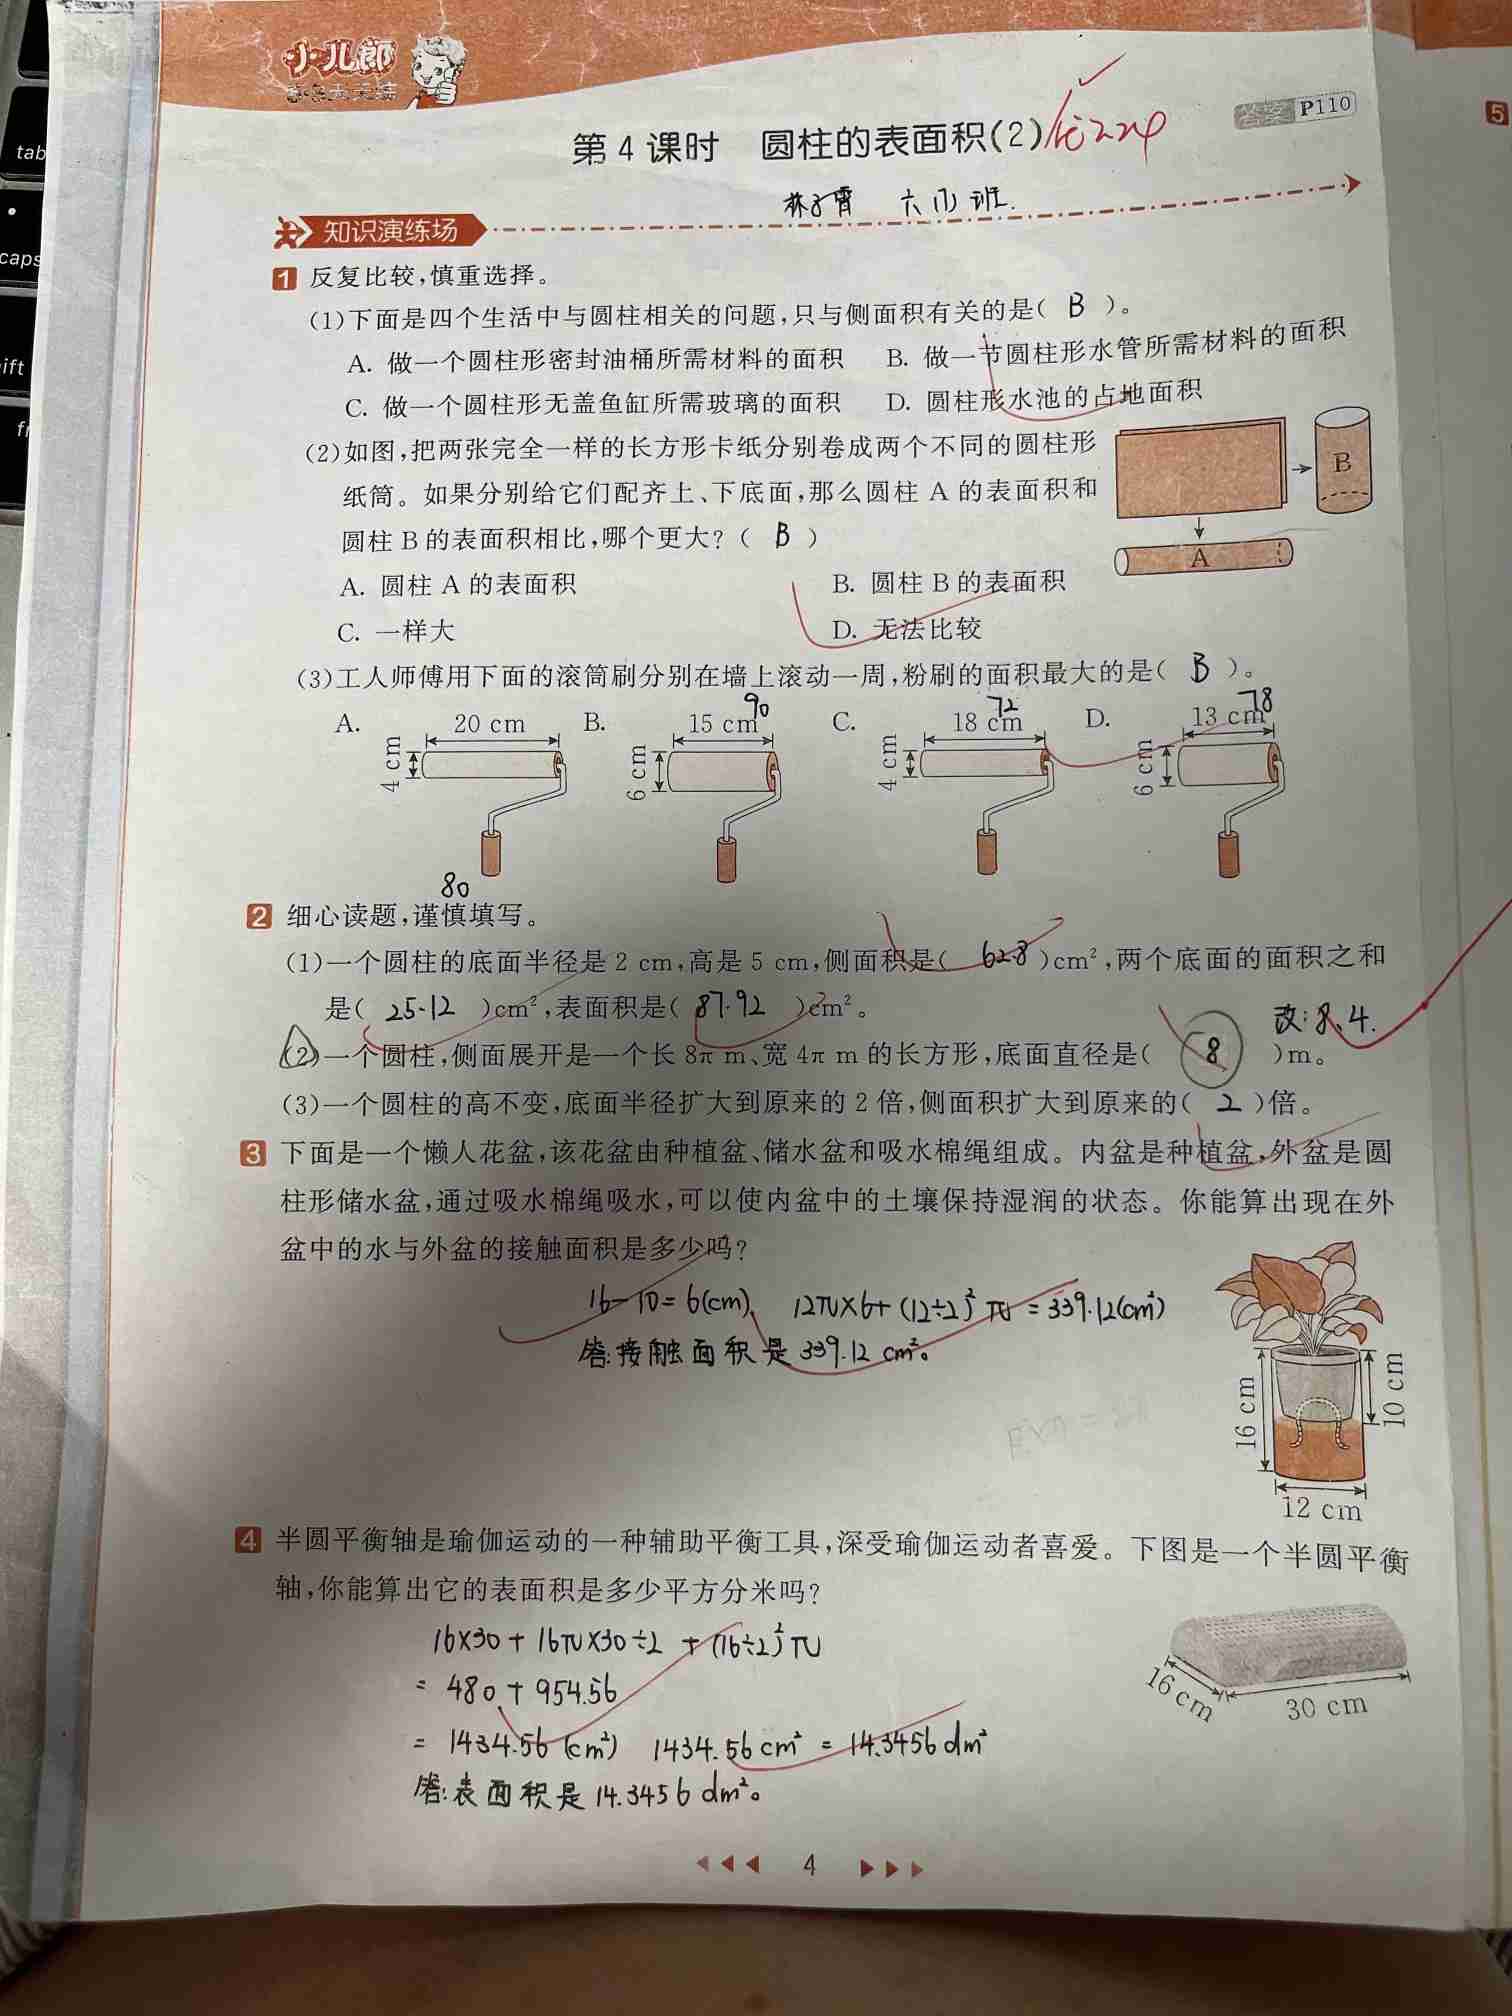 tab
caps
小儿郎
答案 P110
5
第 4 课时 圆柱的表面积(2)
六(1)班.
知识演练场
1 反复比较,慎重选择。
(1)下面是四个生活中与圆柱相关的问题,只与侧面积有关的是( B )。
A. 做一个圆柱形密封油桶所需材料的面积 B. 做一节圆柱形水管所需材料的面积
C. 做一个圆柱形无盖鱼缸所需玻璃的面积 D. 圆柱形水池的占地面积
(2)如图,把两张完全一样的长方形卡纸分别卷成两个不同的圆柱形
纸筒。如果分别给它们配齐上、下底面,那么圆柱 A 的表面积和
圆柱 B 的表面积相比,哪个更大?( B )
B
A
A. 圆柱 A 的表面积 B. 圆柱 B 的表面积
C. 一样大 D. 无法比较
(3)工人师傅用下面的滚筒刷分别在墙上滚动一周,粉刷的面积最大的是( B )。
A. 20 cm 4 cm 80
B. 15 cm 6 cm 90
C. 18 cm 4 cm 72
D. 13 cm 6 cm 78
2 细心读题,谨慎填写。
(1)一个圆柱的底面半径是 2 cm,高是 5 cm,侧面积是( 62.8 )cm²,两个底面的面积之和
是( 25.12 )cm²,表面积是( 87.92 )cm²。
改:8、4.
(2)一个圆柱,侧面展开是一个长 8π m、宽 4π m 的长方形,底面直径是( 8 )m。
(3)一个圆柱的高不变,底面半径扩大到原来的 2 倍,侧面积扩大到原来的( 2 )倍。
3 下面是一个懒人花盆,该花盆由种植盆、储水盆和吸水棉绳组成。内盆是种植盆,外盆是圆
柱形储水盆,通过吸水棉绳吸水,可以使内盆中的土壤保持湿润的状态。你能算出现在外
盆中的水与外盆的接触面积是多少吗?
16-10=6(cm) 12π×6+(12÷2)²π=339.12(cm²)
答:接触面积是339.12 cm²。
16 cm
10 cm
12 cm
4 半圆平衡轴是瑜伽运动的一种辅助平衡工具,深受瑜伽运动者喜爱。下图是一个半圆平衡
轴,你能算出它的表面积是多少平方分米吗?
16×30+16π×30÷2+(16÷2)²π
= 480+954.56
= 1434.56 (cm²) 1434.56 cm² = 14.3456 dm²
答:表面积是14.3456 dm²。
16 cm
30 cm
4